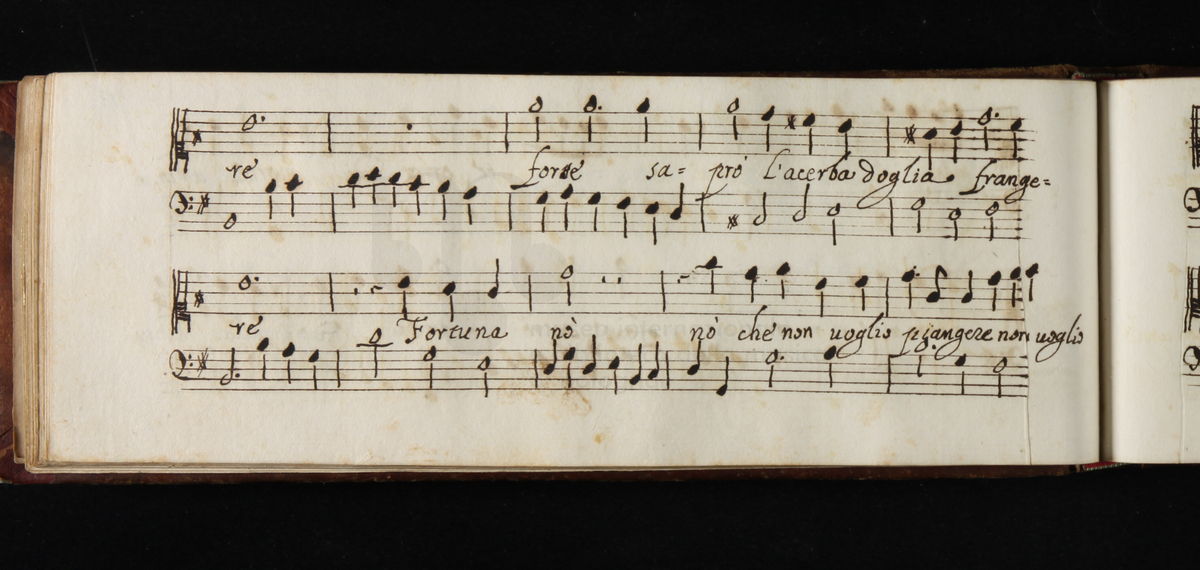 re forse sa= prò l'acerba doglia frange=
re o Fortuna nò nò che non uoglio piangere non uoglio